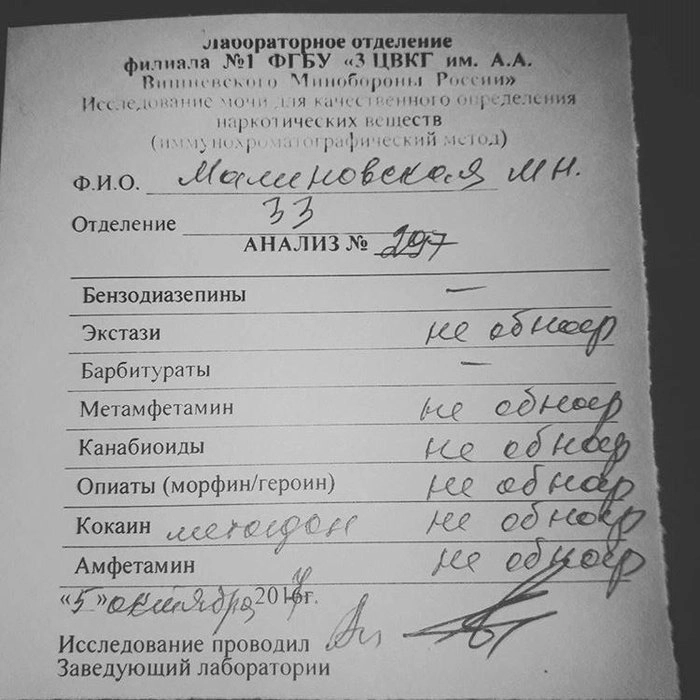 Лабораторное отделение
филиала №1 ФГБУ «3 ЦВКГ им. А.А.
Вишневского Минобороны России»
Исследование мочи для качественного определения
наркотических веществ
(иммунохроматографический метод)
Ф.И.О. Малиновская М Н.
Отделение 33
АНАЛИЗ № 297
Бензодиазепины —
Экстази не обнар
Барбитураты —
Метамфетамин не обнар
Канабиоиды не обнар
Опиаты (морфин/героин) не обнар
Кокаин метадон не обнар
Амфетамин не обнар
«5» октября 2017г.
Исследование проводил
Заведующий лаборатории